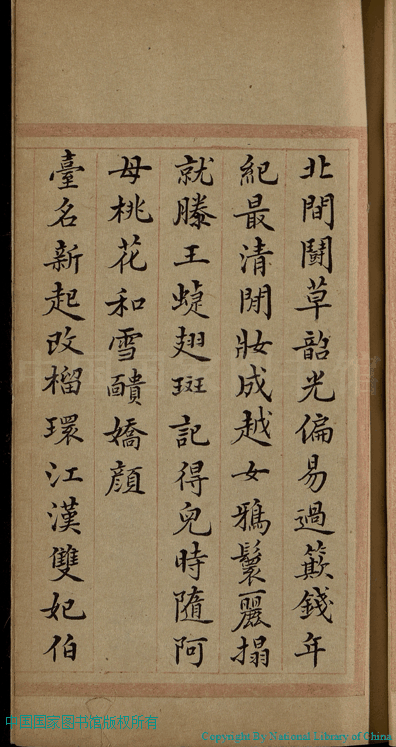 北間鬭草韶光偏易過簸錢年
紀最清閒妝成越女鴉鬟麗搨
就滕王蜨翅斑記得兒時隨阿
母桃花和雪靧嬌顔
臺名新起改榴環江漢雙妃伯
中国国家图书馆版权所有
Copyright By National Library of China